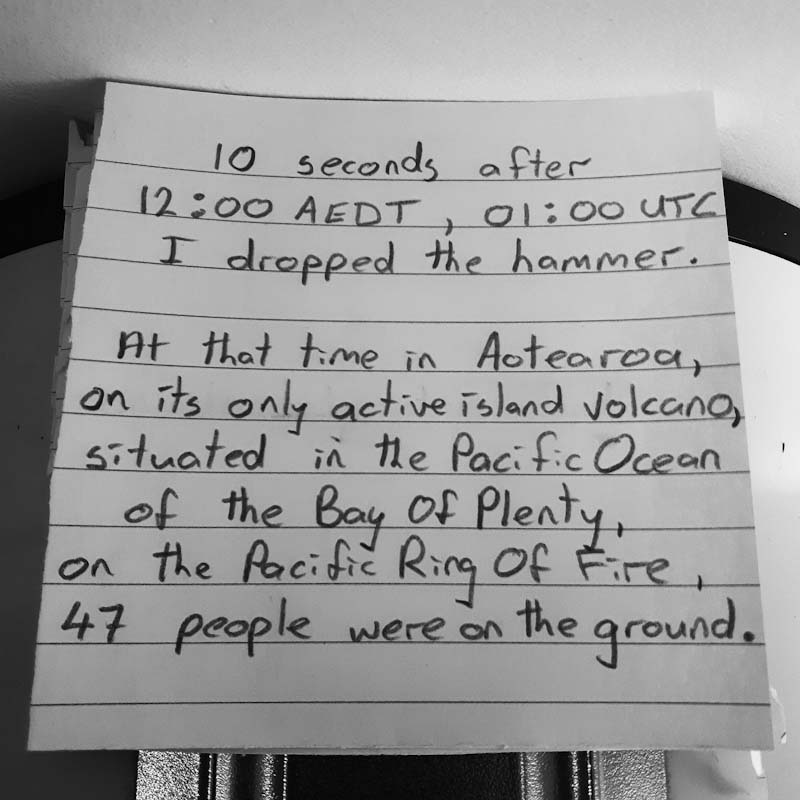 10 seconds after
12:00 AEDT, 01:00 UTC
I dropped the hammer.
At that time in Aotearoa,
on its only active island volcano,
situated in the Pacific Ocean
of the Bay Of Plenty,
on the Pacific Ring Of Fire,
47 people were on the ground.